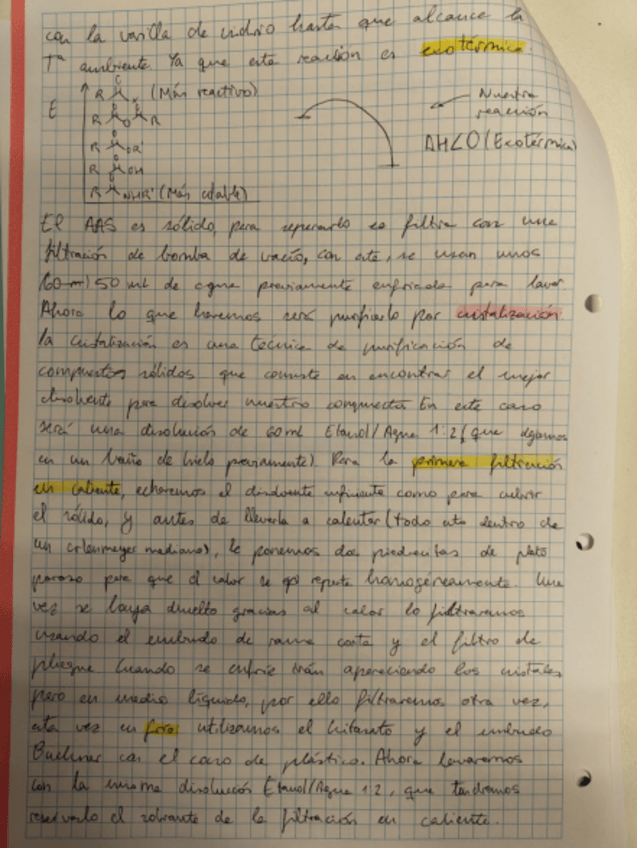 con la varilla de vidrio hasta que alcance la
Tª ambiente. Ya que esta reacción es exotérmica
E
R (Más reactivo)
R O R
R OR'
R OH
R NHR' (Más estable)
Nuestra
reacción
ΔH<0 (Exotérmica)
El AAS es sólido, para separarlo se filtra con una
filtración de bomba de vacío, con este, se usan unos
50 ml de agua previamente enfriada para lavar
Ahora lo que haremos será purificarlo por cristalización
la cristalización es una técnica de purificación de
compuestos sólidos que consiste en encontrar el mejor
disolvente para disolver nuestro compuesto En este caso
será una disolución de 60 ml Etanol/Agua 1:2 (que dejamos
en un baño de hielo previamente). Para la primera filtración
en caliente, echaremos el disolvente suficiente como para cubrir
el sólido, y antes de llevarla a calentar (todo esto dentro de
un erlenmeyer mediano), le ponemos dos piedrecitas de plato
poroso para que el calor se reparta homogéneamente. Una
vez se haya disuelto gracias al calor lo filtraremos
usando el embudo de rama corta y el filtro de
pliegue Cuando se enfríe irán apareciendo los cristales
pero en medio líquido, por ello filtraremos otra vez,
esta vez en utilizamos el kitasato y el embudo
Buchner con el cono de plástico. Ahora lavaremos
con la misma disolución Etanol/Agua 1:2, que tendremos
el sobrante de la filtración en caliente.